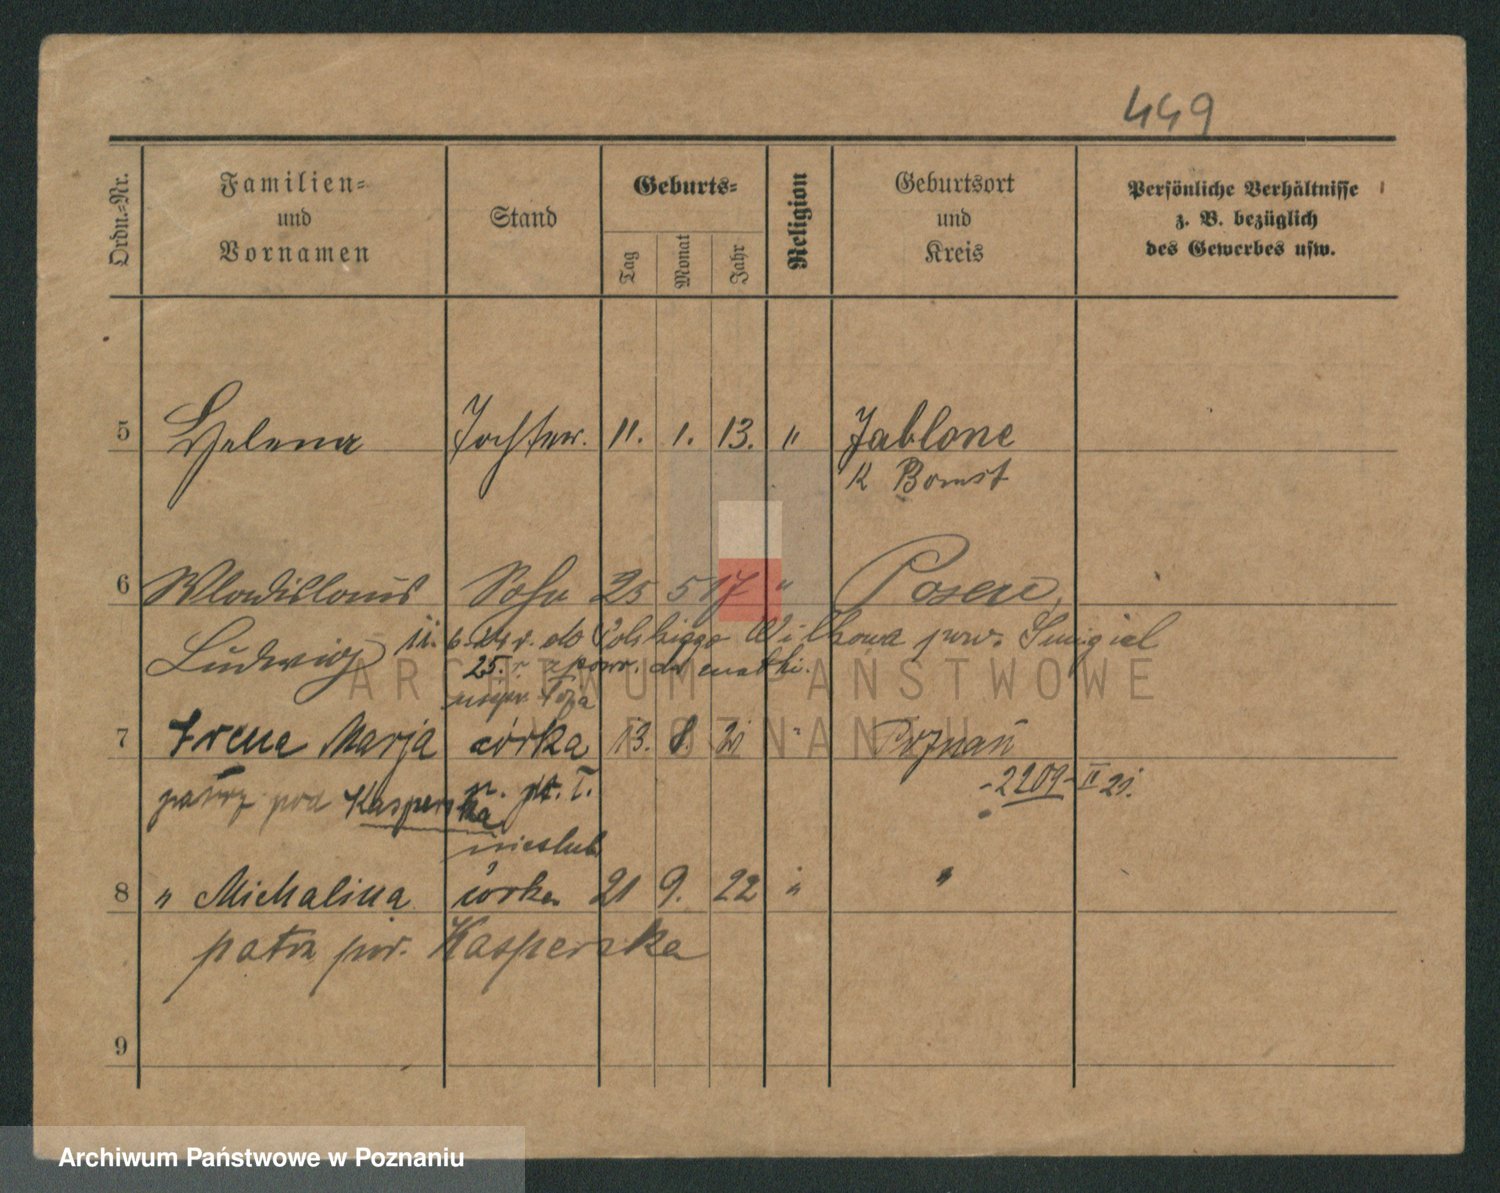 449
Ordn.-Nr.
Familien-
und
Vornamen
Stand
Geburts-
Tag
Monat
Jahr
Religion
Geburtsort
und
Kreis
Persönliche Verhältnisse
z. B. bezüglich
des Gewerbes usw.
5 Helena Tochter. 11. 1. 13. " Jablone
K Bomst
6 Wladislaus Sohn 25 5 17 " Posen
Ludwig 11. 6. do Polskiego Wilkowa pow. Smigiel
25. r. z powr. do matki.
7 Irena Marja córka 13. 8. 21 " Poznań
patrz pod Kasperska
n. pł. I. -2209- II 21.
nieślub.
8 " Michalina córka 21 9. 22 " "
patrz pod. Kasperska
9
ARCHIWUM PAŃSTWOWE
W POZNANIU
Archiwum Państwowe w Poznaniu